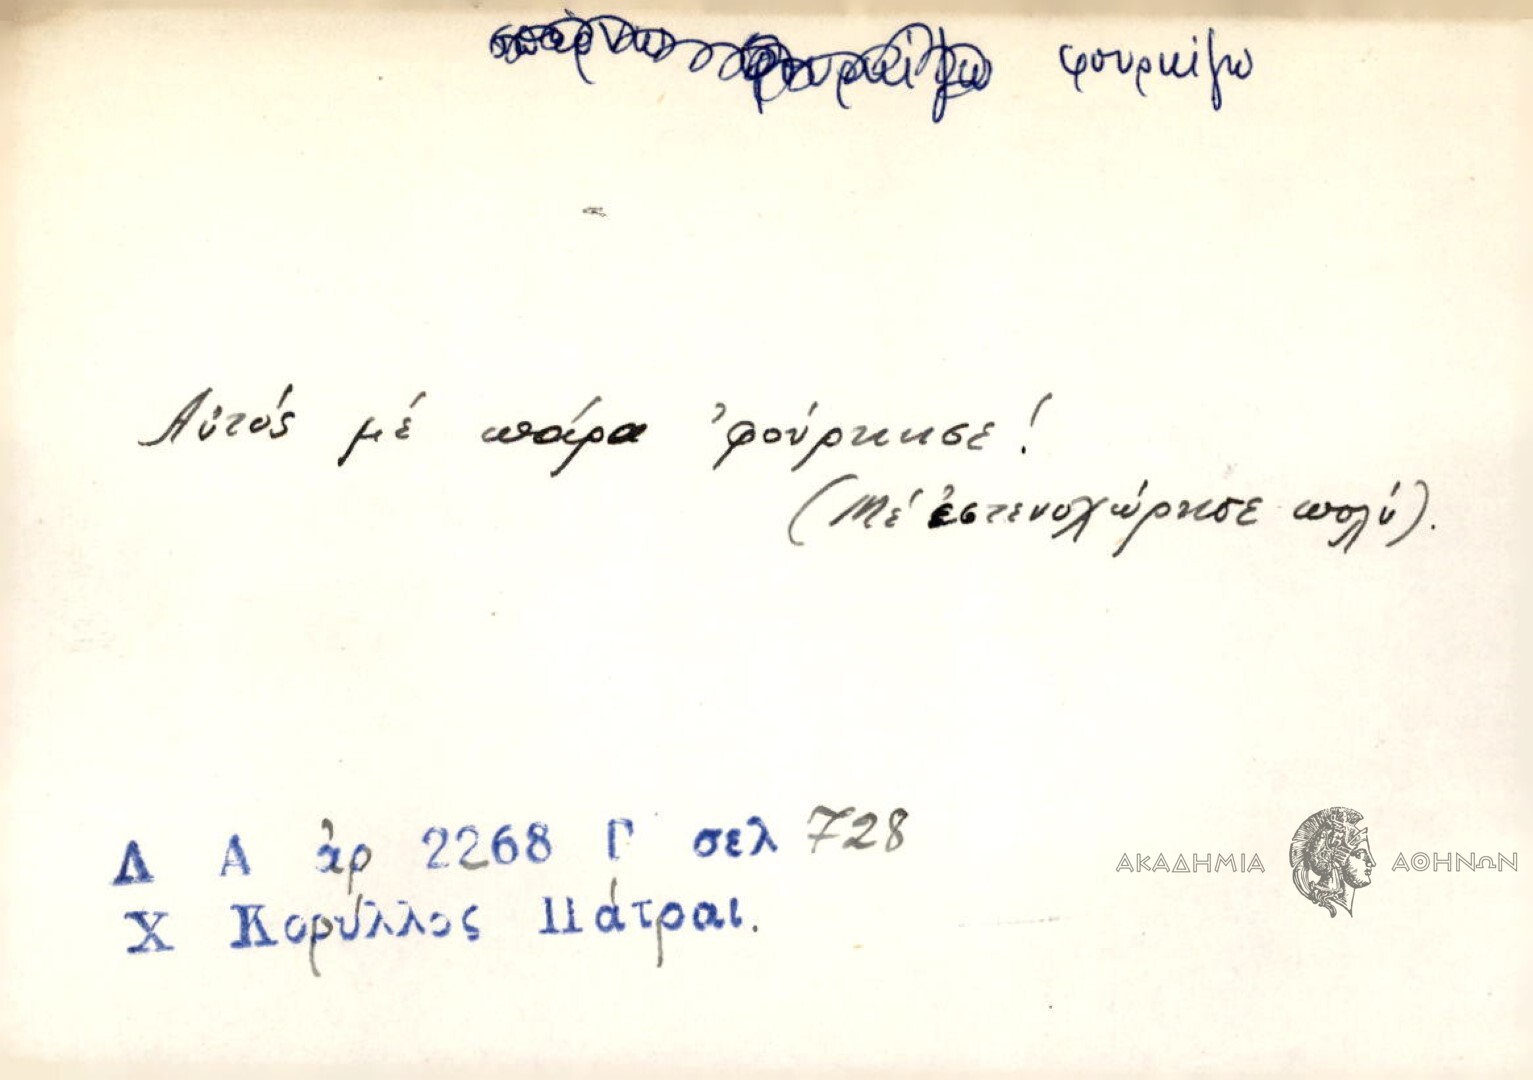 φουρκίζω
Αὐτός μέ πάρα 'φούρκισε!
(Μέ ἐστενοχώρησε πολύ).
Λ Α ἀρ 2268 Γ σελ 728
Χ Κορύλλος Πάτραι.
ΑΚΑΔΗΜΙΑ ΑΘΗΝΩΝ